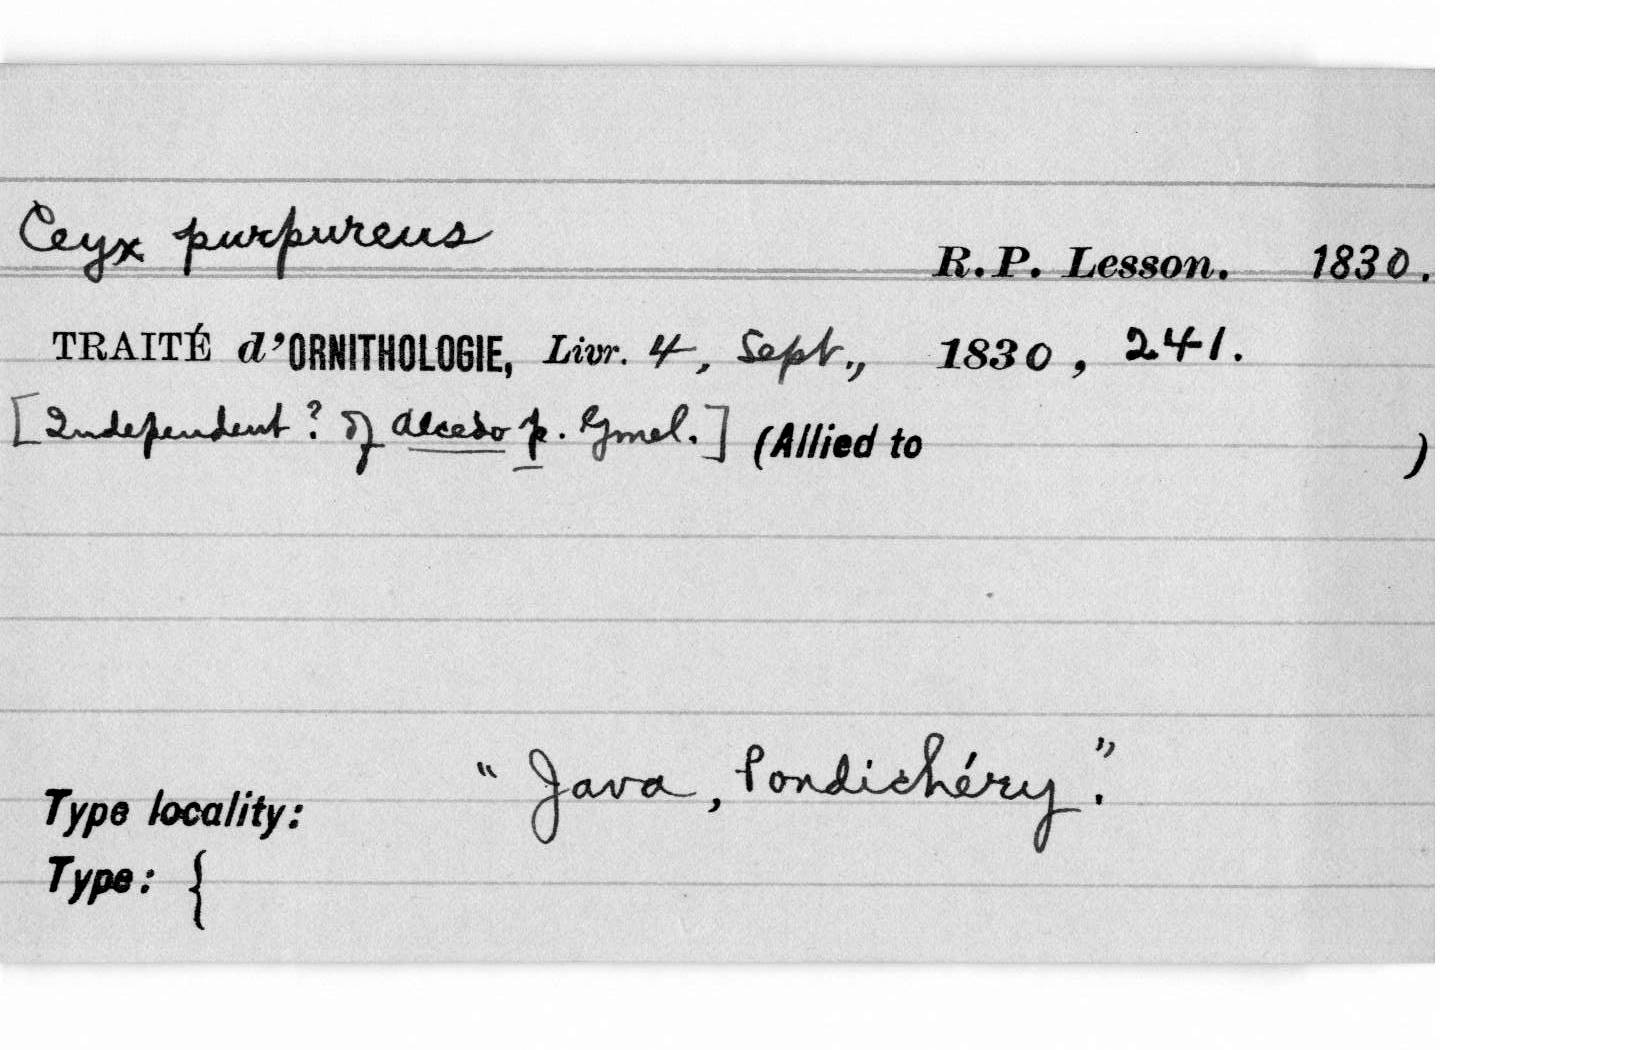 Ceyx purpureus
R. P. Lesson. 1830.
TRAITÉ d'ORNITHOLOGIE, Livr. 4, Sept., 1830, 241.
[Independent? of Alcedo p. Gmel.] (Allied to )
Type locality: "Java, Pondichéry."
Type: {